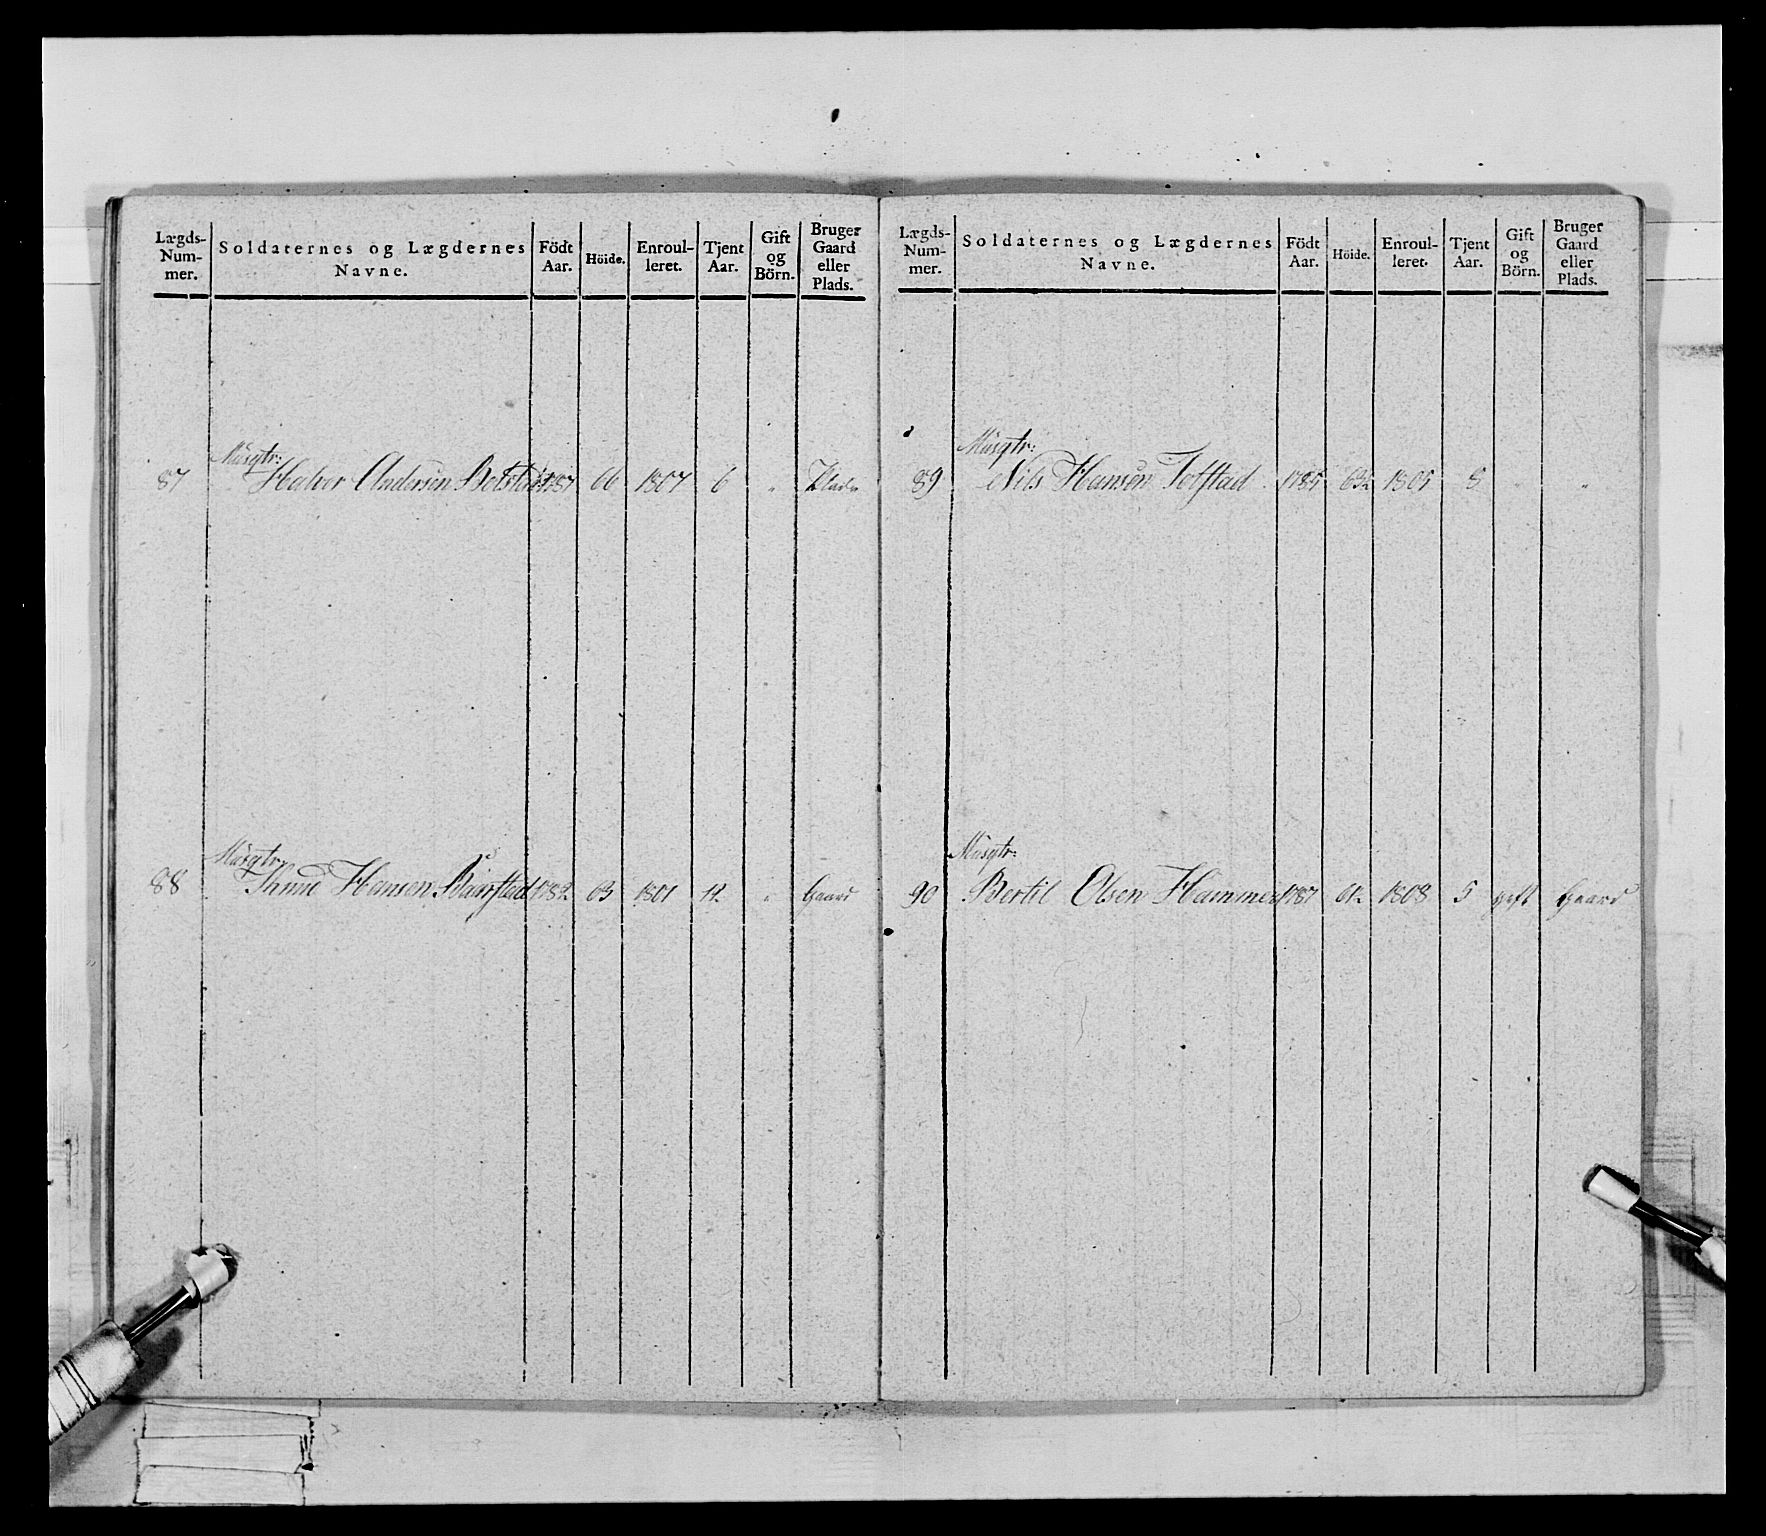 Lægds-Num-mer. Soldaternes og Lægdernes Navne. Födt Aar. Höide. Enroul-leret. Tjent Aar. Gift og Börn. Bruger Gaard eller Plads.
Musqtr:
87 Halvor Andersen 1787 66 1807 6 " Plads
Musqtr:
88 Hansen 1782 63 1801 12 " Gaard
Lægds-Num-mer. Soldaternes og Lægdernes Navne. Födt Aar. Höide. Enroul-leret. Tjent Aar. Gift og Börn. Bruger Gaard eller Plads.
Musqtr:
89 Nils Hansen Tofstad 1785 63½ 1805 8 " "
Musqtr:
90 Bertil Olsen Hammer 1787 1808 5 gift Gaard